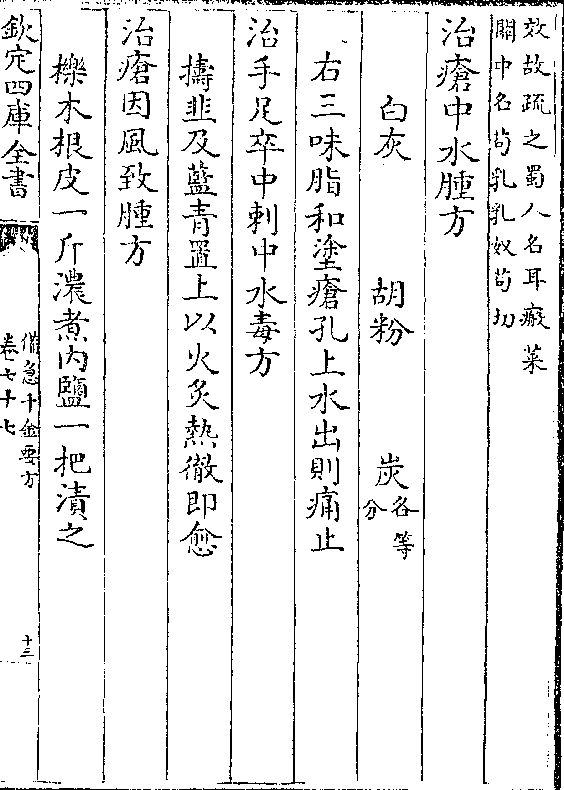 效故疏之蜀人名耳瘢菜
關中名茍乳乳奴茍切
治瘡中水腫方
白灰 胡粉 炭各等分
右三味脂和塗瘡孔上水出則痛止
治手足卒中刺中水毒方
擣韭及藍青置上以火炙熱徹即愈
治瘡因風致腫方
櫟木根皮一斤濃煮内鹽一把漬之
欽定四庫全書
備急千金要方
卷七十七
十三